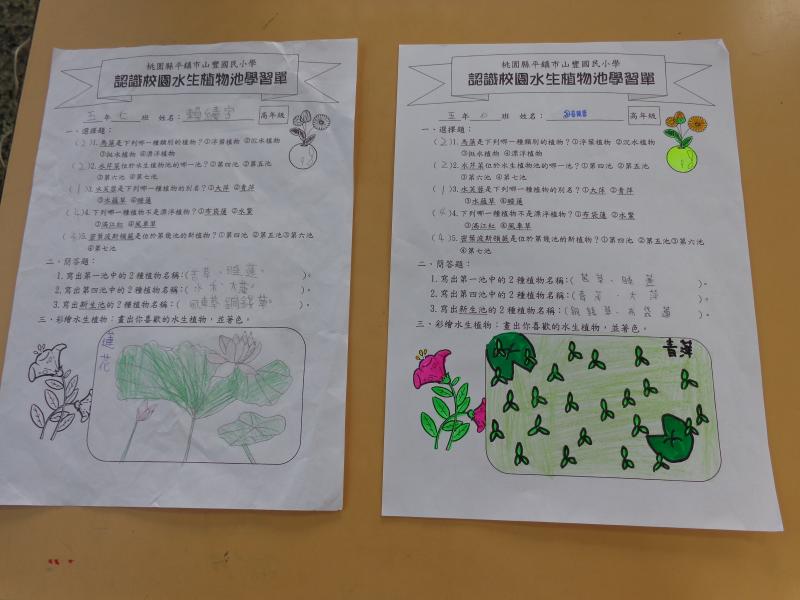 桃園縣平鎮市山豐國民小學
認識校園水生植物池學習單
五年七班 姓名: 高年級
一、選擇題:
(2)1.馬藻是下列哪一種類別的植物?①浮葉植物 ②沉水植物
③挺水植物 ④漂浮植物
(2)2.水芹菜位於水生植物池的哪一池?①第四池 ②第五池
③第六池 ④第七池
(1)3.水芙蓉是下列哪一種植物的別名?①大萍 ②青萍
③水蘊草 ④睡蓮
(4)4.下列哪一種植物不是漂浮植物?①布袋蓮 ②水鱉
③滿江紅 ④風車草
(4)5.密葉波斯頓蕨是位於第幾池的新植物?①第四池 ②第五池③第六池
④第七池
二、簡答題:
1.寫出第一池中的2種植物名稱:(苦草、睡蓮)。
2.寫出第四池中的2種植物名稱:(水、大萍)。
3.寫出新生池的2種植物名稱:(風車草、銅錢草)。
三、彩繪水生植物:畫出你喜歡的水生植物,並著色。
蓮花
桃園縣平鎮市山豐國民小學
認識校園水生植物池學習單
五年 班 姓名: 高年級
一、選擇題:
(2)1.馬藻是下列哪一種類別的植物?①浮葉植物 ②沉水植物
③挺水植物 ④漂浮植物
(2)2.水芹菜位於水生植物池的哪一池?①第四池 ②第五池
③第六池 ④第七池
(1)3.水芙蓉是下列哪一種植物的別名?①大萍 ②青萍
③水蘊草 ④睡蓮
(4)4.下列哪一種植物不是漂浮植物?①布袋蓮 ②水鱉
③滿江紅 ④風車草
(4)5.密葉波斯頓蕨是位於第幾池的新植物?①第四池 ②第五池③第六池
④第七池
二、簡答題:
1.寫出第一池中的2種植物名稱:(苦草、睡蓮)。
2.寫出第四池中的2種植物名稱:(青萍、大萍)。
3.寫出新生池的2種植物名稱:(銅錢草、布袋蓮)。
三、彩繪水生植物:畫出你喜歡的水生植物,並著色。
青萍